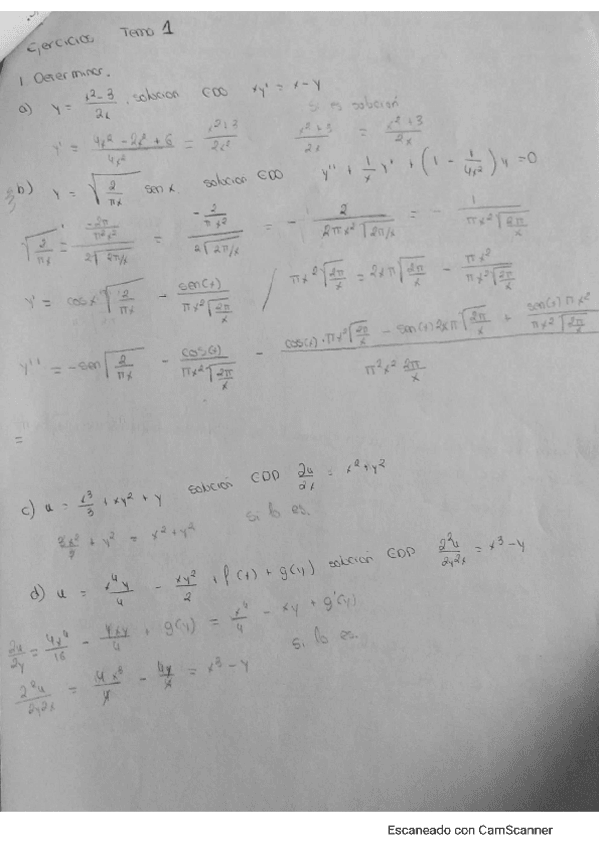 Ejercicios Tema 1
1. Determinar.
a) y = (x² - 3)/(2x), solución EDO xy' = x - y
si es solución
y' = (4x² - 2x² + 6)/(4x²) = (x² + 3)/(2x²) (x² + 3)/(2x) = (x² + 3)/(2x)
b) y = √(2/(πx)) sen x, solución EDO y'' + (1/x) y' + (1 - 1/(4x²)) y = 0
y' = cos x √(2/(πx)) - sen(x)/(πx² √(2π/x)) / πx² √(2π/x) = 2xπ √(2π/x) - πx²/(πx² √(2π/x))
y'' = -sen √(2/(πx)) - cos(x)/(πx² √(2π/x)) - (cos(x)·πx² √(2π/x) - sen(x) 2xπ √(2π/x) + sen(x) πx²/(πx² √(2π/x)))/(π² x² 2π/x)
=
c) u = x³/3 + xy² + y solución EDP ∂u/∂x = x² + y²
+ y² = x² + y² si lo es.
d) u = x⁴y/4 - xy²/2 + f(x) + g(y) solución EDP ∂²u/∂y∂x = x³ - y
∂u/∂y = 4x⁴/16 - 4xy/4 + g(y) = x⁴/4 - xy + g'(y)
si lo es.
∂²u/∂y∂x = = x³ - y
Escaneado con CamScanner